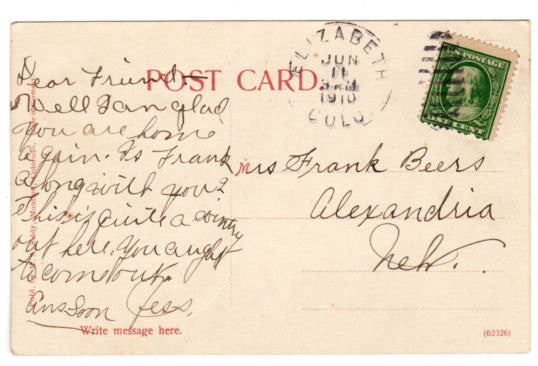 POST CARD.
ELIZABETH
JUN
11
1910
COLO.
U.S. POSTAGE
ONE CENT
Dear Friend—
Well I am glad
you are home
again. Is Frank
along with you?
This is quite a country
out here. You aught
to come out.
Ans Soon Jess.
Mrs Frank Beers
Alexandria
Nebr.
Write message here.
(62326)